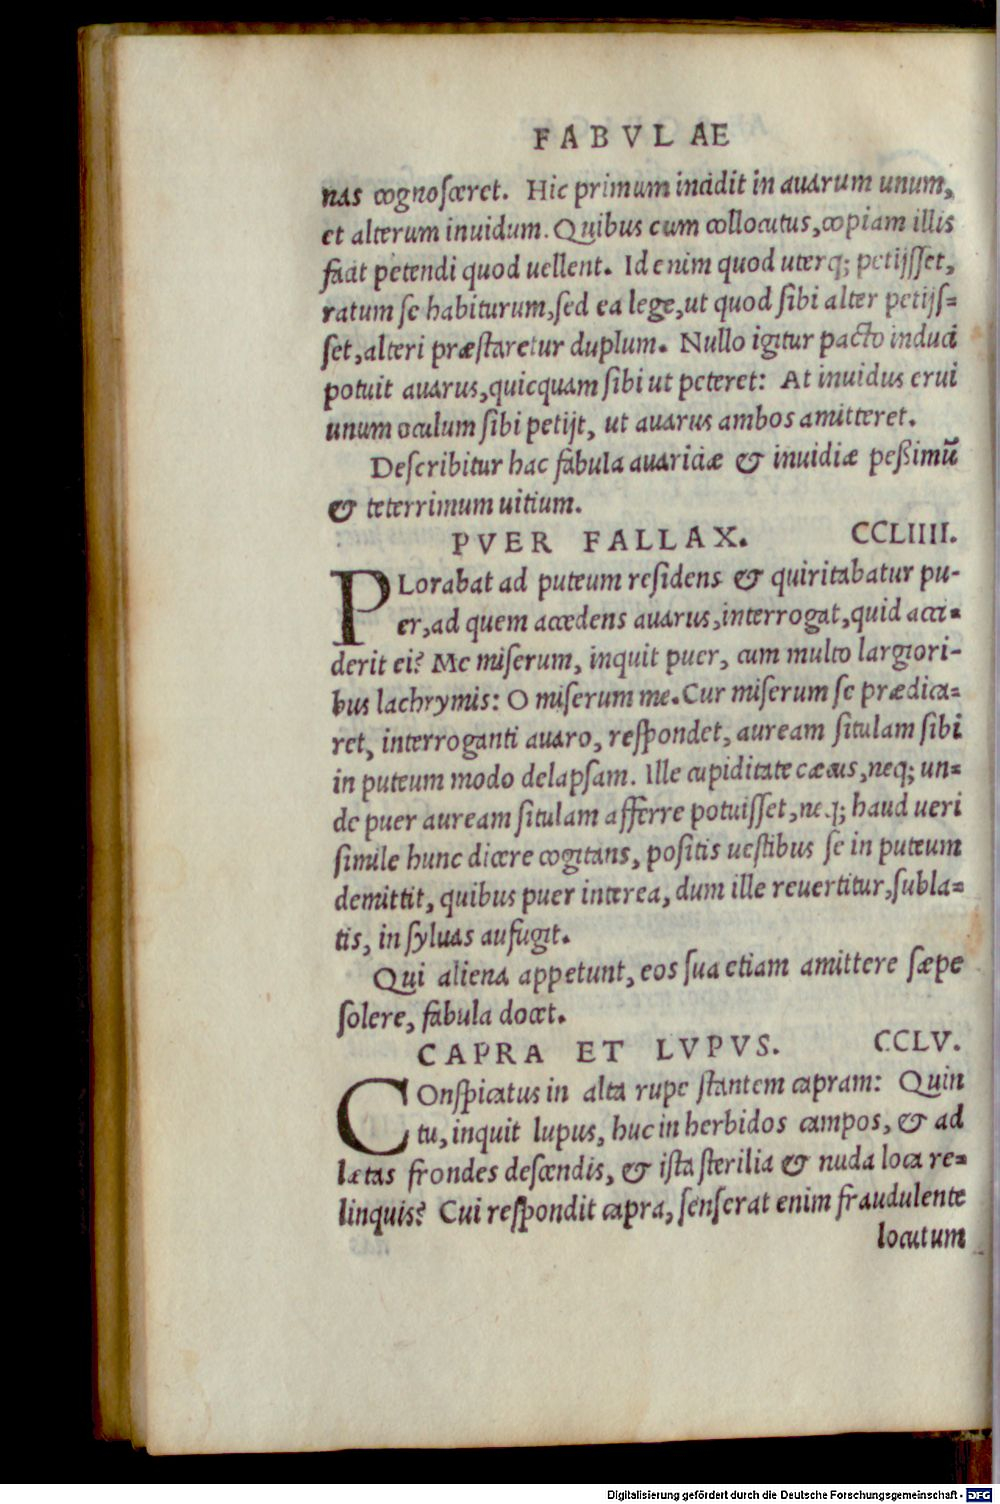 FABVLAE
nas cognosceret. Hic primum incidit in auarum unum,
et alterum inuidum. Quibus cum collocutus, copiam illis
facit petendi quod uellent. Id enim quod uterq; petijsset,
ratum se habiturum, sed ea lege, ut quod sibi alter petijs=
set, alteri præstaretur duplum. Nullo igitur pacto induci
potuit auarus, quicquam sibi ut peteret: At inuidus erui
unum oculum sibi petijt, ut auarus ambos amitteret.
Describitur hac fabula auariciæ & inuidiæ peßimũ
& teterrimum uitium.
PVER FALLAX. CCLIIII.
PLorabat ad puteum residens & quiritabatur pu-
er, ad quem accedens auarus, interrogat, quid acci=
derit ei? Me miserum, inquit puer, cum multo largiori-
bus lachrymis: O miserum me. Cur miserum se prædica=
ret, interroganti auaro, respondet, auream situlam sibi
in puteum modo delapsam. Ille cupiditate cæcus, neq; un=
de puer auream situlam afferre potuisset, neq; haud ueri
simile hunc dicere cogitans, positis uestibus se in puteum
demittit, quibus puer interea, dum ille reuertitur, subla=
tis, in syluas aufugit.
Qui aliena appetunt, eos sua etiam amittere sæpe
solere, fabula docet.
CAPRA ET LVPVS. CCLV.
COnspicatus in alta rupe stantem capram: Quin
tu, inquit lupus, huc in herbidos campos, & ad
lætas frondes descendis, & ista sterilia & nuda loca re=
linquis? Cui respondit capra, senserat enim fraudulente
locutum
Digitalisierung gefördert durch die Deutsche Forschungsgemeinschaft - DFG